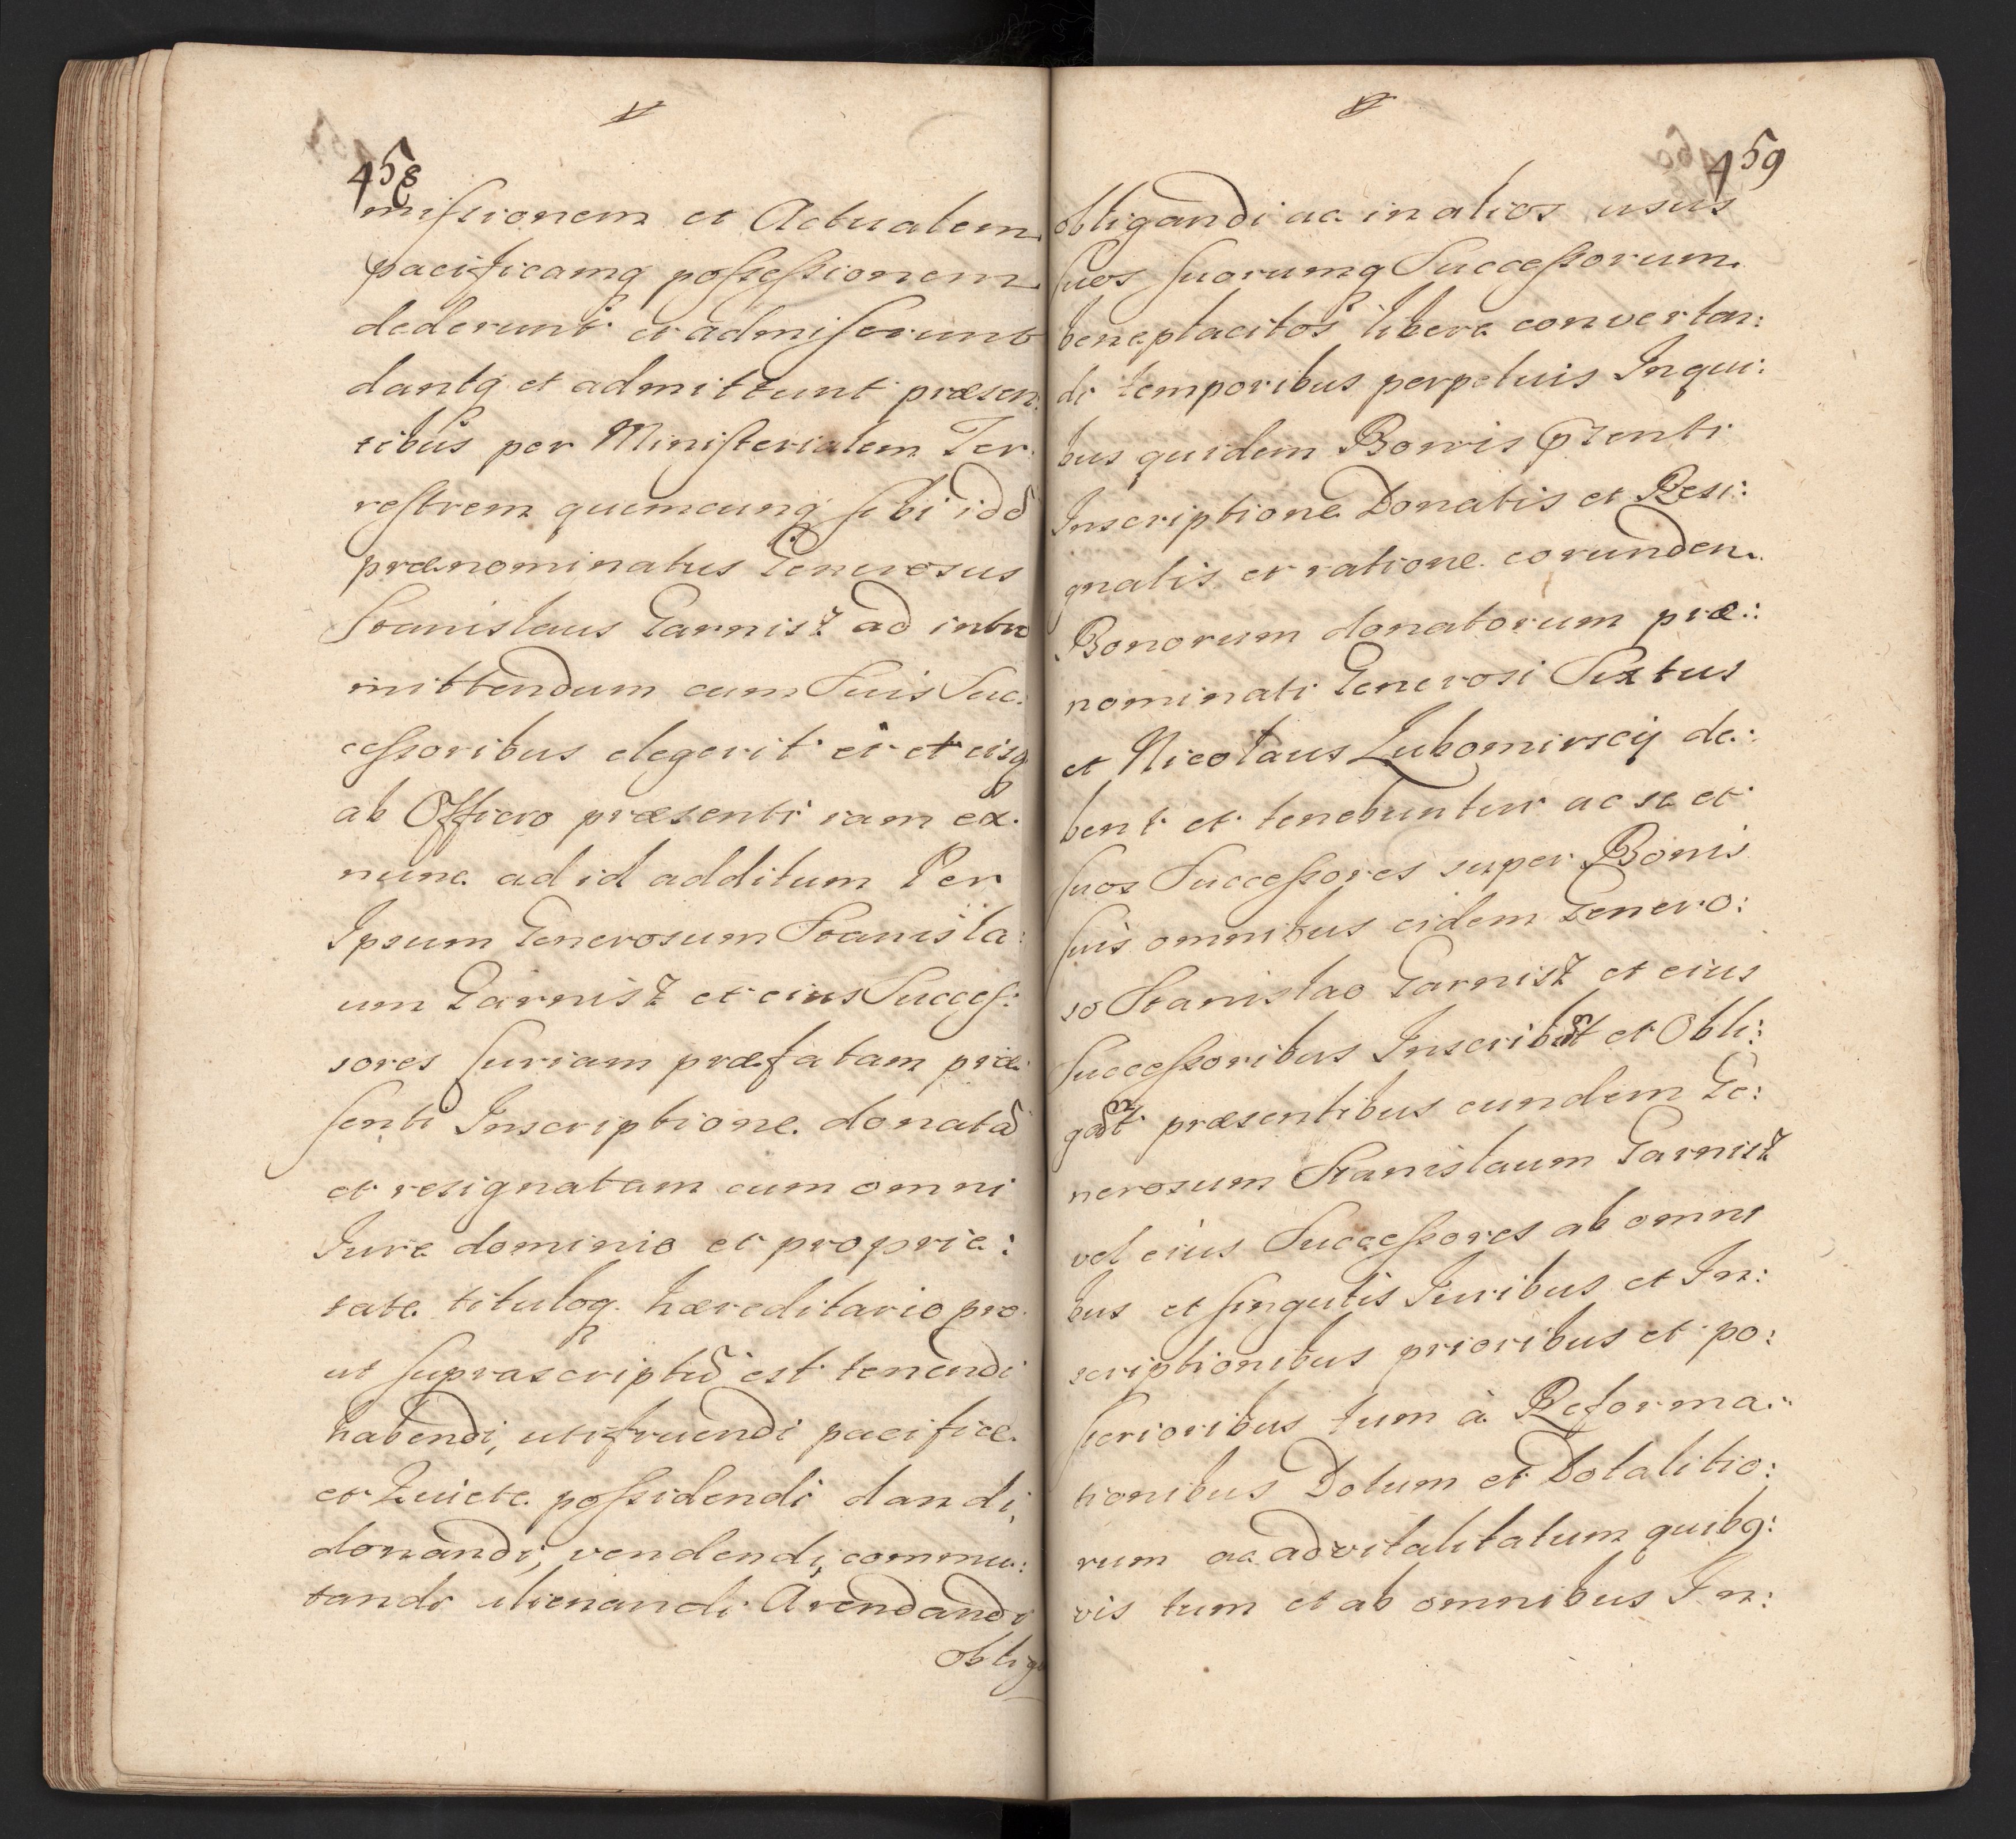 458
missionem et Actualem
pacificamq possessionem
dederunt et admiserunt
dantq et admittunt præsen:
tibus per Ministerialem Ter:
restrem quemcunq sibi idd
prænominatus Generosus
Stanislaus Garnisz ad intro
mittendum cum Suis Suc:
cessoribus elegerit ei et eisq
ab Officio præsenti iam ex
nunc ad id additum Per
Ipsum Generosum Stanisla:
um Garnisz et eius Succes:
sores Suriam præfatam præ:
senti Inscriptione donatã
et resignatam cum omni
Iure dominio et proprie:
tate tituloq. hæreditario pro
ut suprascriptũ est tenendi
habendi, utifruendi pacifice
et Quiete possidendi dandi,
donandi, vendendi, commu:
tandi alienandi Arendandi
oblig
459
obligandi ac in alios usus
suos suorumq Successorum
beneplacitos libere converten:
di temporibus perpetuis In qui:
bus quidem Bonis pzenti
Inscriptione Donatis et Resi:
gnatis et ratione eorundem
Bonorum donatorum præ:
nominati Generosi Sixtus
et Nicolaus Lubomirscy de:
bent et tenebuntur ac se et
suos Successores super Bonis
suis omnibus eidem Genero:
so Stanislao Garnisz et eius
Successoribus Inscribũt et Obli:
gãt præsentibus eundem Ge:
nerosum Stanislaum Garnisz
vel eius Successores ab omni
bus et singulis Iuribus et In:
scriptionibus prioribus et po:
sterioribus tum à Reforma:
tionibus Dotum et Dotalitio:
rum ac advitalitatum quibq:
vis tum et ab omnibus In: